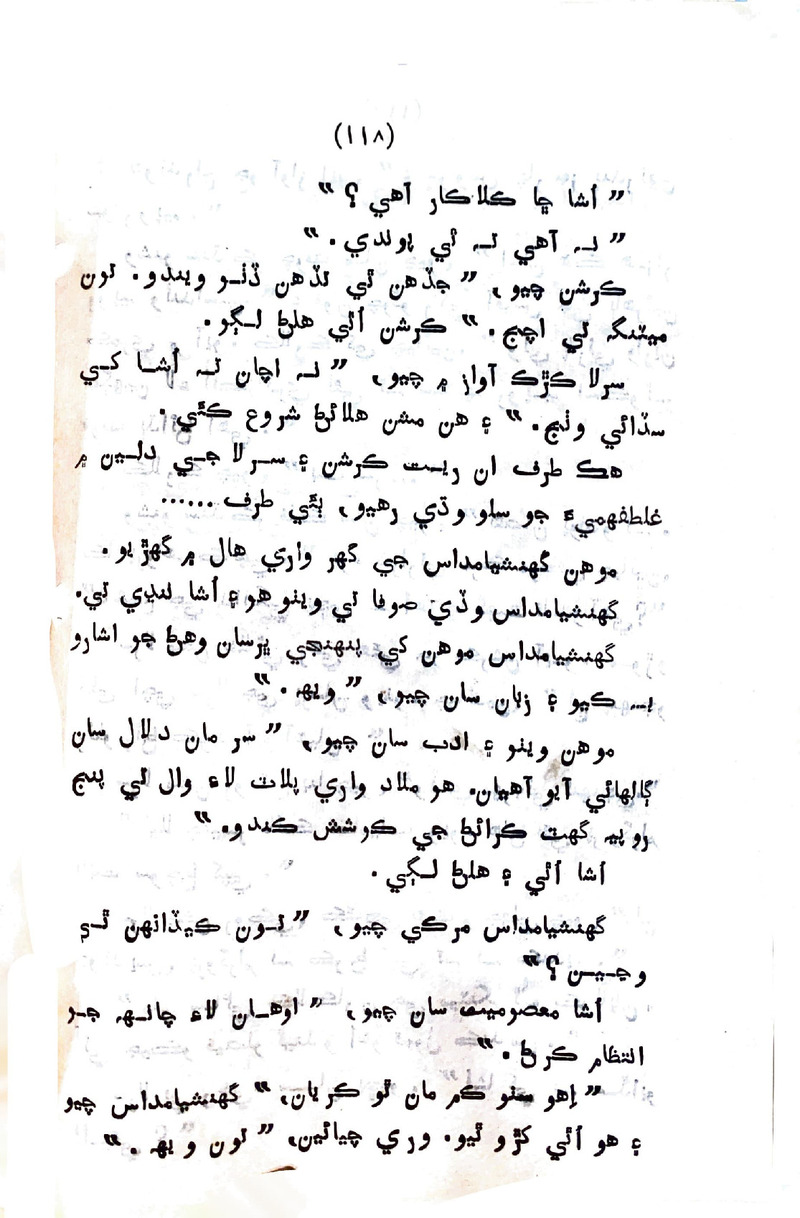 (١١٨)
” اُشا ڇا ڪلاڪار آهي ؟ “
” نہ آهي تہ ٿي پوندي . “
ڪرشن چيو ، ” جڏهن ٿي تڏهن ڏٺو ويندو . تون
ميٽنگہ تي اچج . “ ڪرشن اُٿي هلڻ لڳو .
سرلا ڪڙڪ آواز ۾ چيو ، ” نہ اچان تہ اُشا کي
سڏائي وٺج . “ ۽ هن مشن هلائڻ شروع ڪئي .
هڪ طرف ان ريت ڪرشن ۽ سرلا جي دلين ۾
غلطفهميءَ جو سلو وڌي رهيو ، ٻئي طرف ......
موهن گهنشيامداس جي گهر واري هال ۾ گهڙيو .
گهنشيامداس وڏي صوفا تي ويٺو هو ۽ اُشا ننڍي تي .
گهنشيامداس موهن کي پنهنجي ڀرسان وهڻ جو اشارو
بہ ڪيو ۽ زبان سان چيو ، ” ويهہ . “
موهن ويٺو ۽ ادب سان چيو ، ” سر مان دلال سان
ڳالهائي آيو آهيان . هو ملاد واري پلاٽ لاءِ وال تي پنج
روپيہ گهٽ ڪرائڻ جي ڪوشش ڪندو . “
اُشا اُٿي ۽ هلڻ لڳي .
گهنشيامداس مرڪي چيو ، ” تون ڪيڏانهن ٿي
وڃين ؟ “
اُشا معصوميت سان چيو ، ” اوهان لاءِ چانهہ جو
انتظام ڪرڻ . “
” اِهو سٺو ڪم مان ٿو ڪريان ، “ گهنشيامداس چيو
۽ هو اُٿي کڙو ٿيو . وري چيائين ، ” تون ويهہ . “